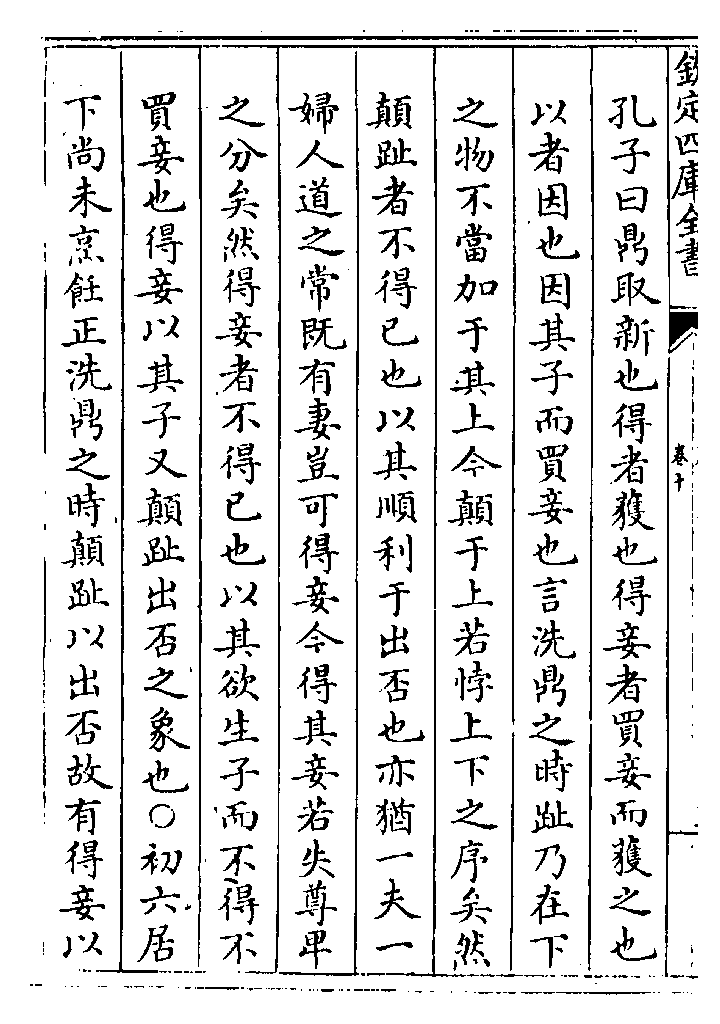 欽定四庫全書
卷十
孔子曰鼎取新也得者獲也得妾者買妾而獲之也
以者因也因其子而買妾也言洗鼎之時趾乃在下
之物不當加于其上今顛于上若悖上下之序矣然
顛趾者不得已也以其順利于出否也亦猶一夫一
婦人道之常既有妻豈可得妾今得其妾若失尊卑
之分矣然得妾者不得已也以其欲生子而不得不
買妾也得妾以其子又顛趾出否之象也○初六居
下尚未烹飪正洗鼎之時顛趾以出否故有得妾以